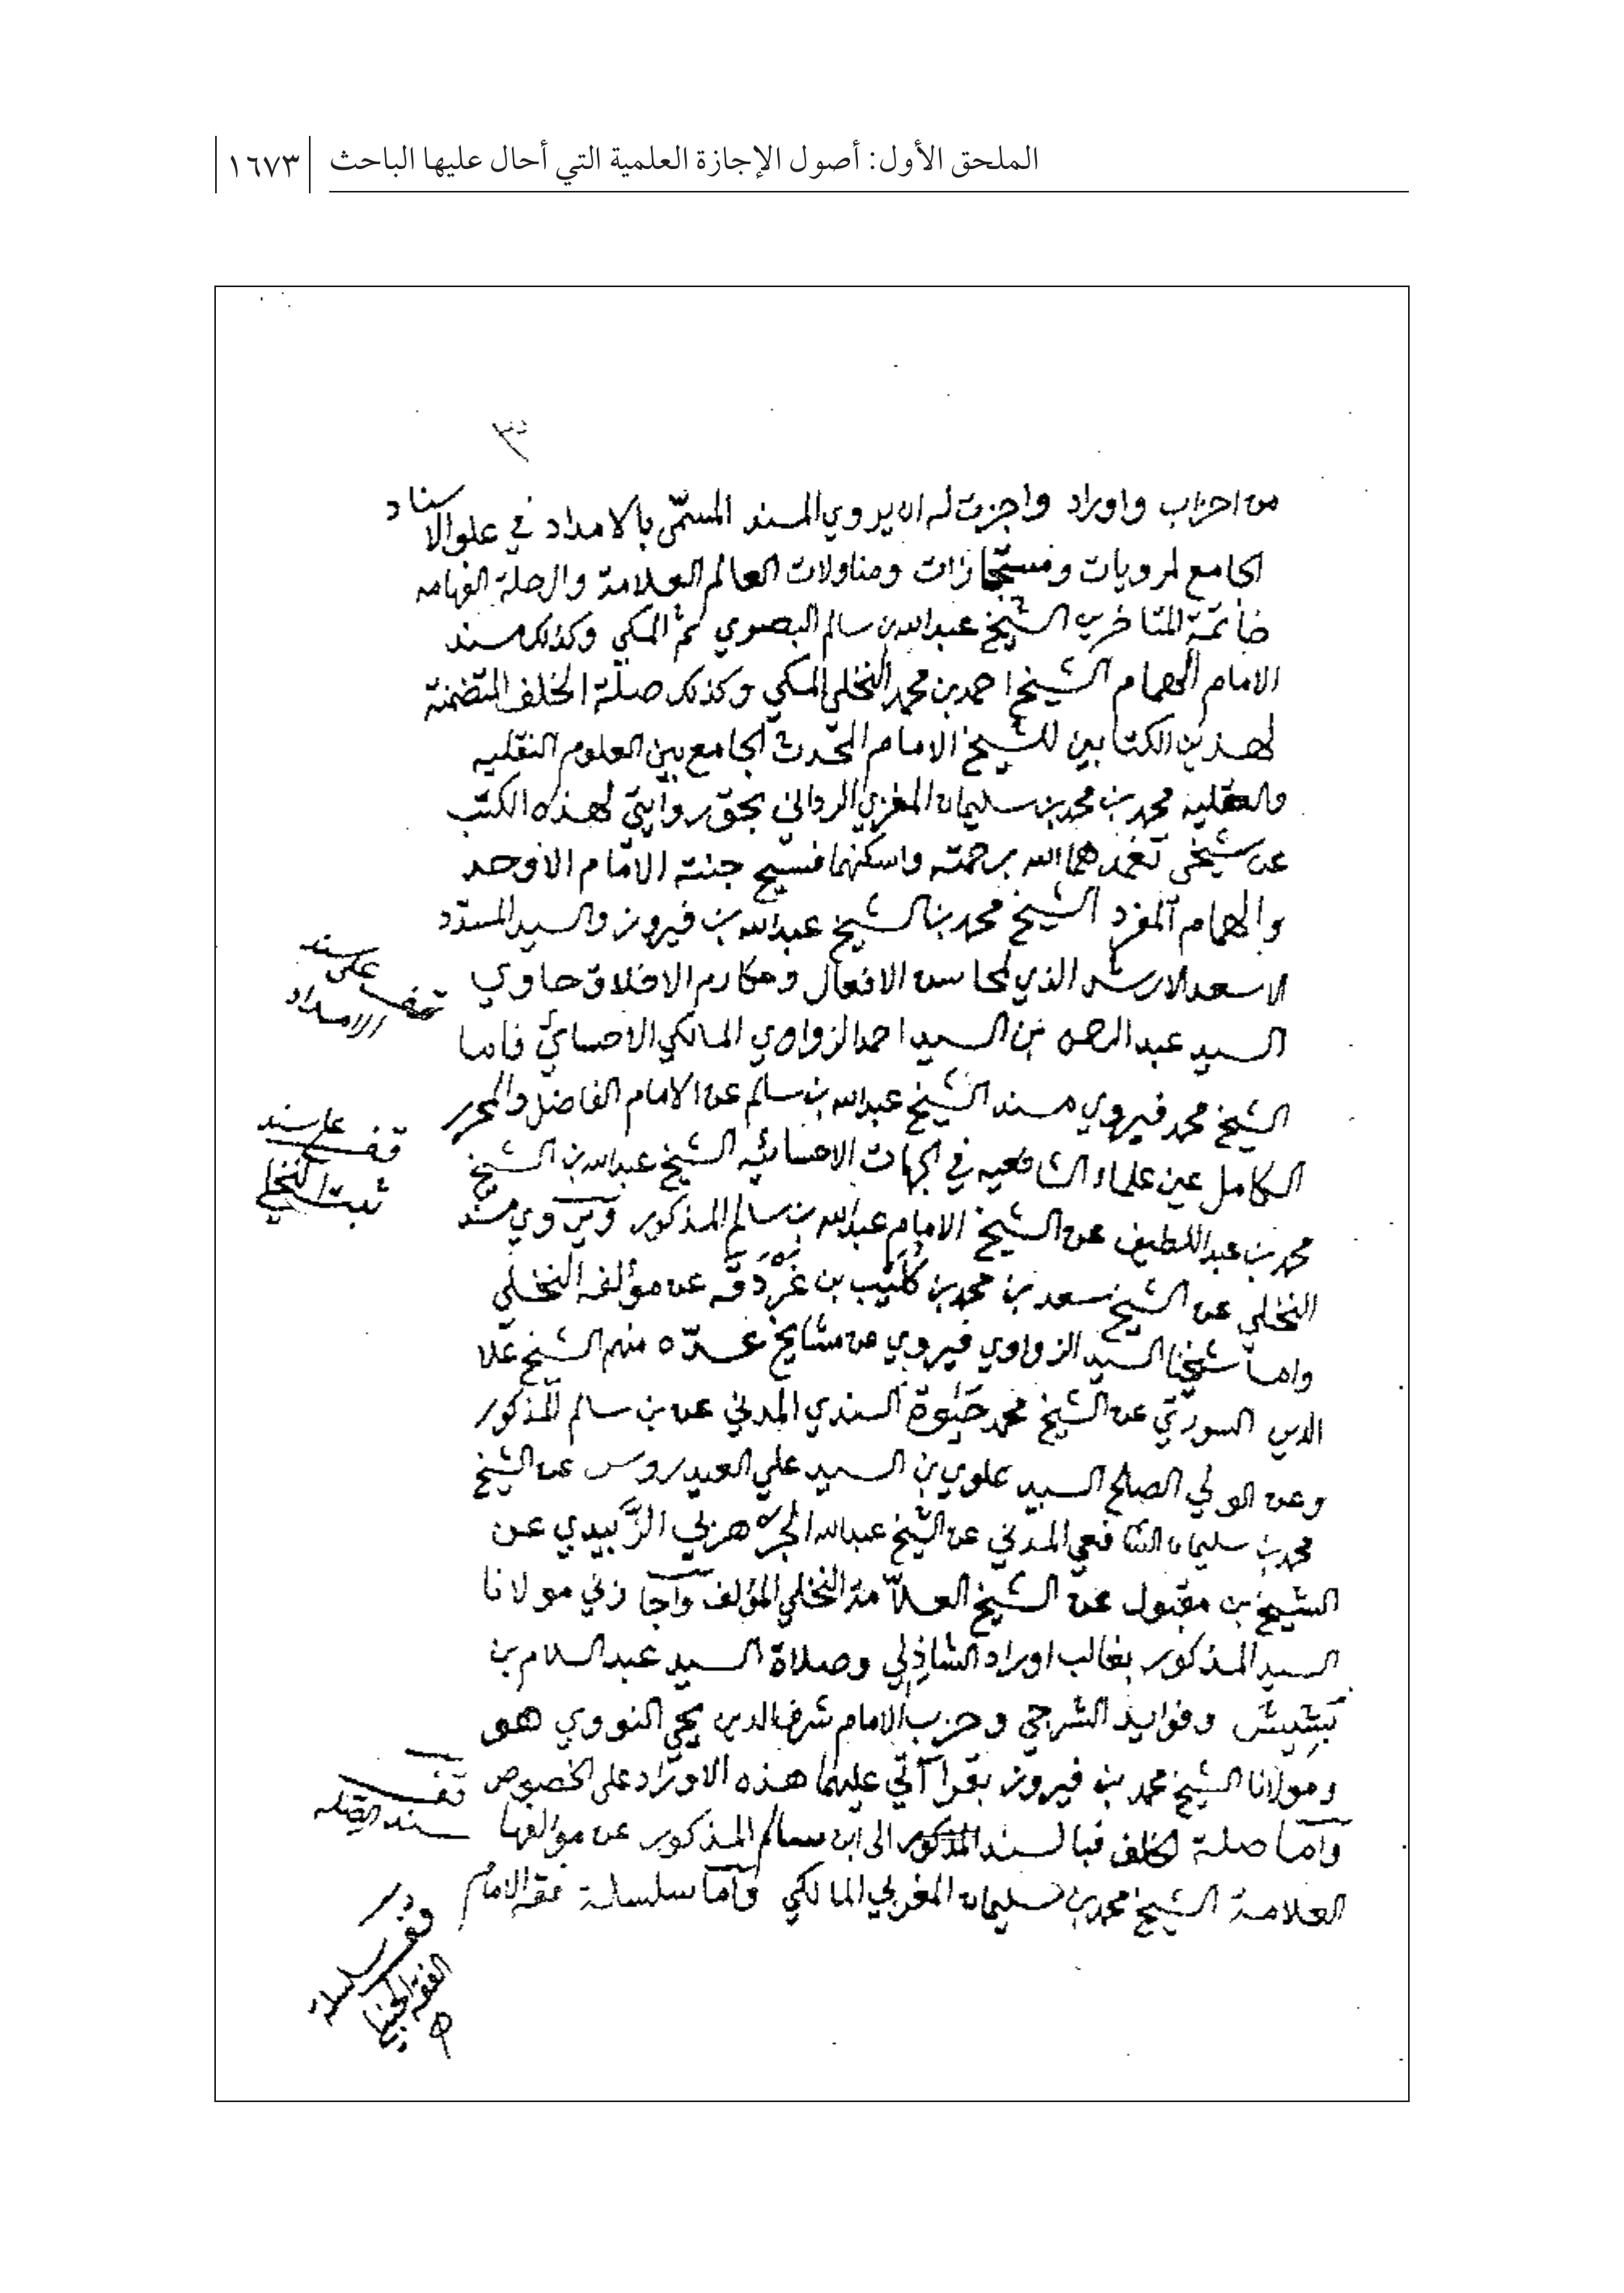 الملحق الأول: أصول الإجازة العلمية التي أحال عليها الباحث
١٦٧٣
٣
من احزاب واوراد واجزت له ان يروي المسند المسمّى بالامداد في علو الاسناد
الجامع لمرويات ومستجازات ومناولات العالم العلامة والرحلة الفهامه
خاتمة المتاخرين الشيخ عبدالله بن سالم البصري ثم المكي وكذلك مسند
الامام الهمام الشيخ احمد بن محمد النخلي المكي وكذلك صلة الخلف المتضمنة
لهذين الكتابين للشيخ الامام المحدث الجامع بين العلوم النقليه
والعقليه محمد بن محمد بن سليمان المغربي الرداني بحق روايتي لهذه الكتب
عن شيخي تغمدهما الله برحمته واسكنهما فسيح جنته الامام الاوحد
والهمام المفرد الشيخ محمد بن الشيخ عبدالله بن فيروز والسيد المسدد
الاسعد الارشد الذي لمحاسن الافعال ومكارم الاخلاق حاوي
السيد عبدالرحمن بن السيد احمد الزواوي المالكي الاحسائي فاما
الشيخ محمد فيروي مسند الشيخ عبدالله بن سالم عن الامام الفاضل والمحرر
الكامل عين علماء الشافعيه في الجهات الاحسائيه الشيخ عبدالله بن الشيخ
محمد بن عبداللطيف عن الشيخ الامام عبدالله بن سالم المذكور ويروي مسند
النخلي عن الشيخ سعد بن محمد بن كُلَيْب بن غَرْدَقَه عن مؤلفه النخلي
واما شيخنا السيد الزواوي فيروي عن مشايخ عدّه منهم الشيخ علا
الدين السورتي عن الشيخ محمد حَيْوة السندي المدني عن بن سالم المذكور
وعن الولي الصالح السيد علوي بن السيد علي العيدروس عن الشيخ
محمد بن سليمان الشافعي المدني عن الشيخ عبدالله الجرهزي الزَّبيدي عن
الشيخ بن مقبول عن الشيخ العلاّمة النخلي المؤلف واجازني مولانا
السيد المذكور بغالب اوراد الشاذلي وصلاة السيد عبدالسلام بن
بَشِيش وفوايد الشرجي وحزب الامام شرف الدين يحي النووي هو
ومولانا الشيخ محمد بن فيروز بقرآتي عليهما هذه الاوراد على الخصوص
واما صلة الخلف فبالسند المذكور الى ابن سالم المذكور عن مؤلفها
العلامة الشيخ محمد بن سليمان المغربي المالكي واما سلسلة فقه الامام
تقف على سند
الامداد
تقف على سند
ثبت النخلي
تقف
سند الصله
وقف سلسلة
الفقه الحنبلي